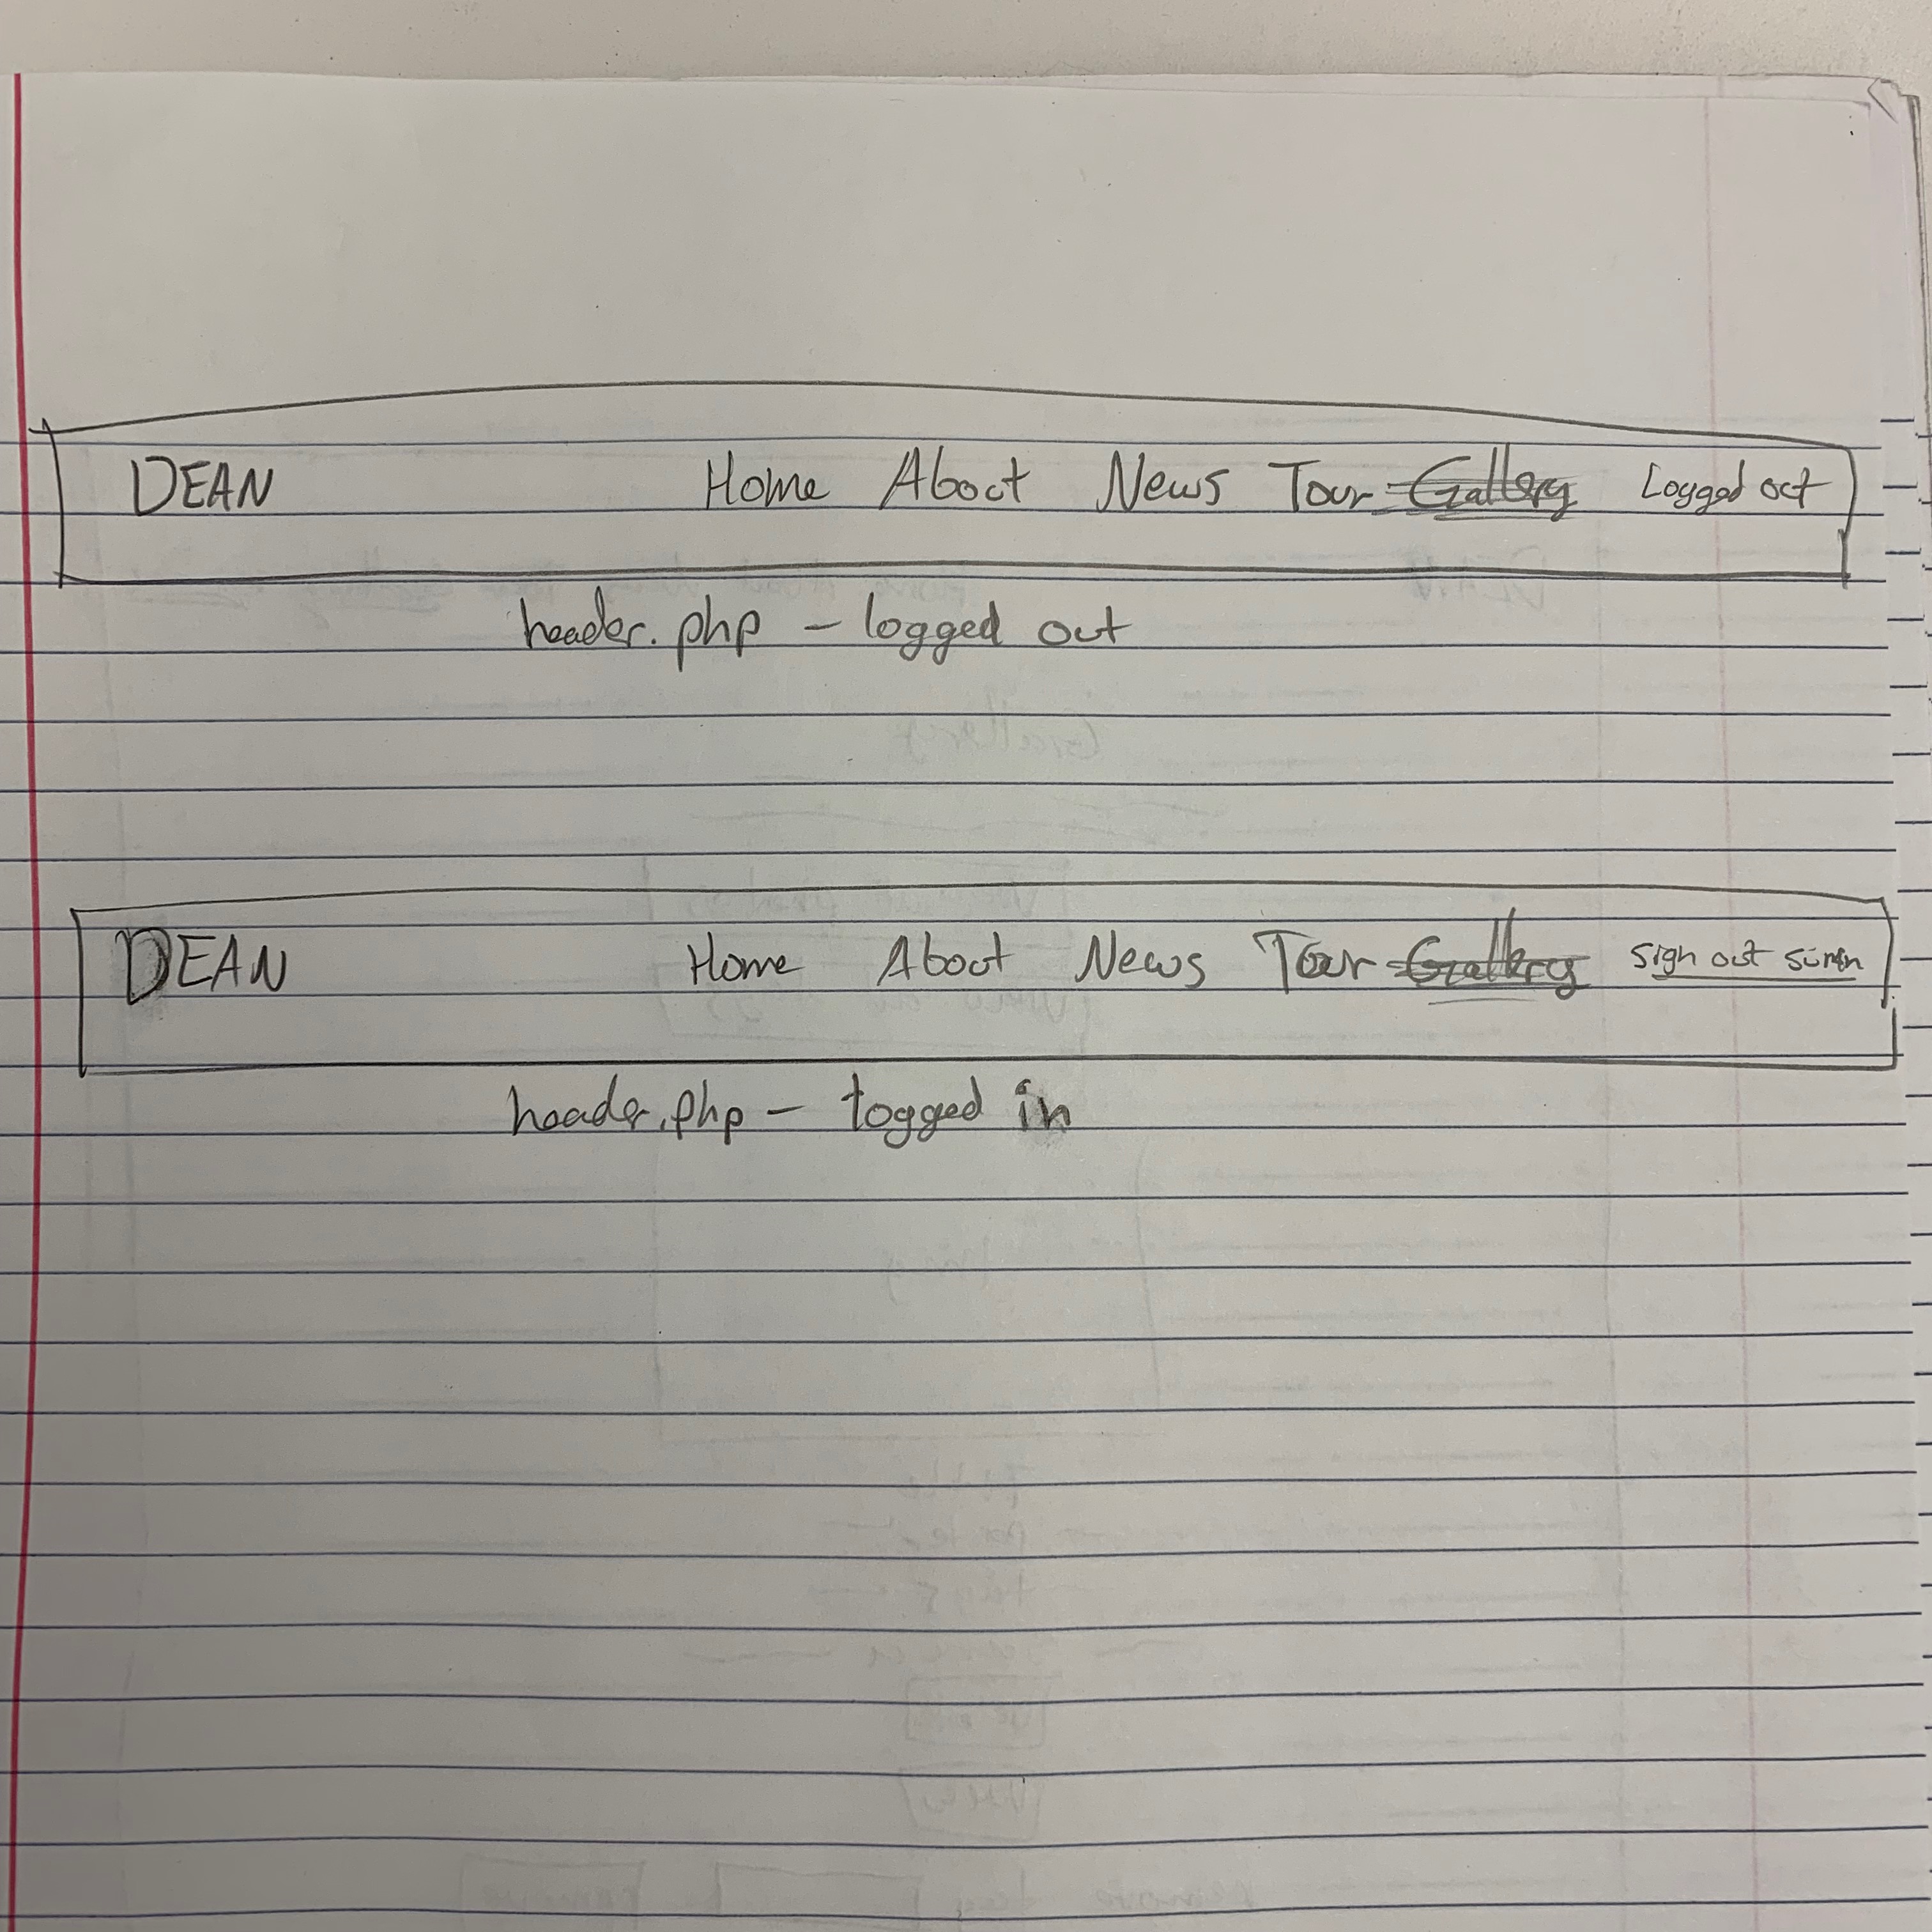 DEAN Home About News Tour Gallery Logged out
header.php - logged out
DEAN Home About News Tour Gallery sign out
header.php - logged in